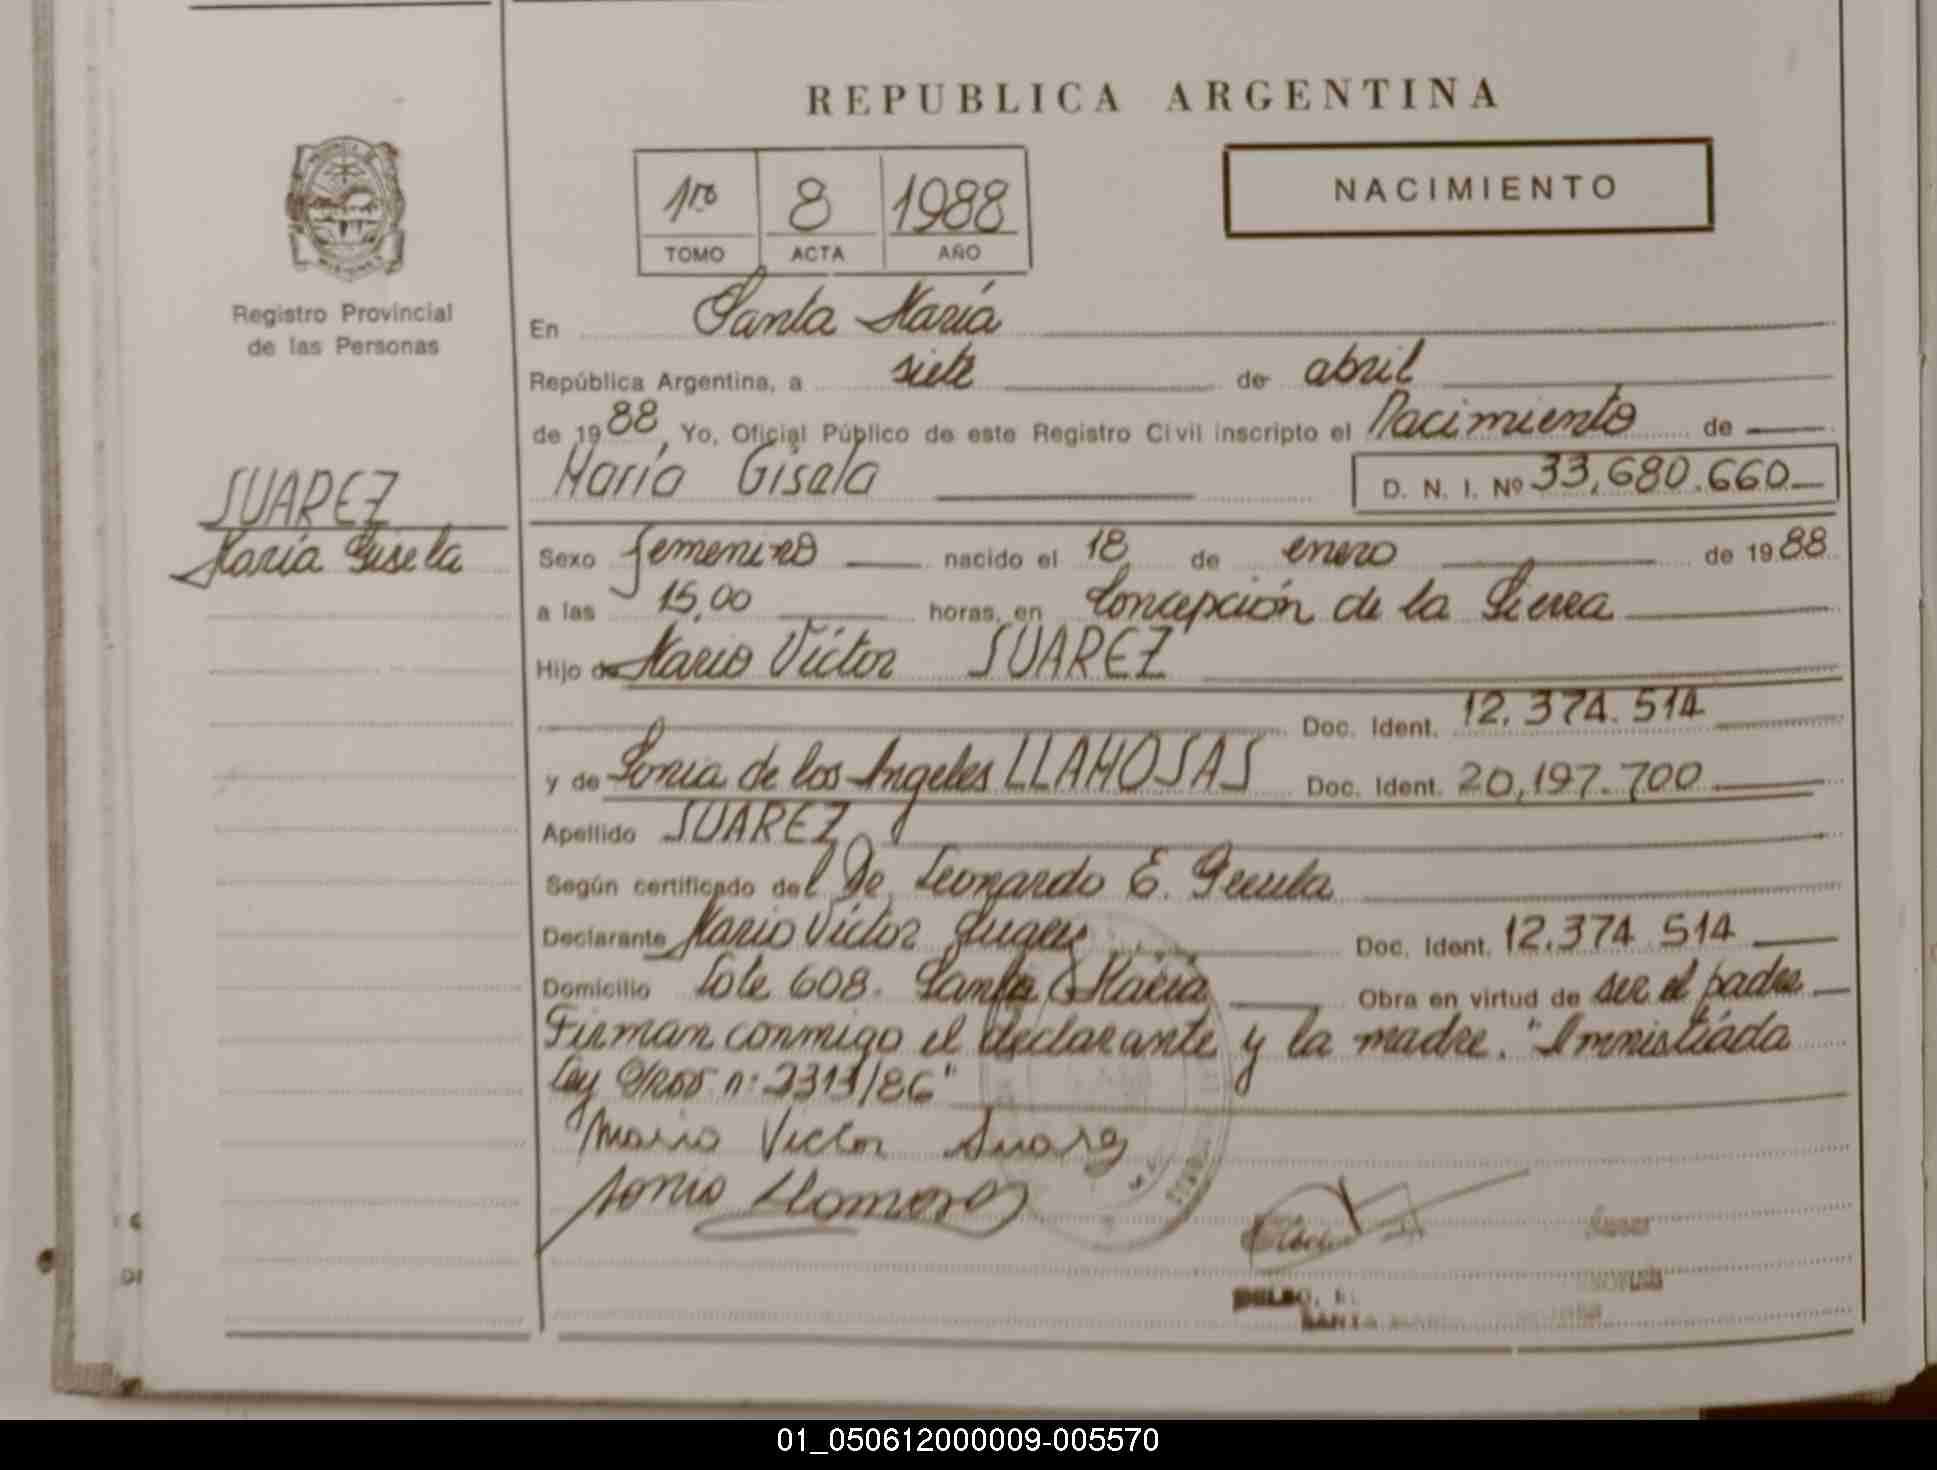 REPUBLICA ARGENTINA
1ro 8 1988
TOMO ACTA AÑO
NACIMIENTO
Registro Provincial
de las Personas
SUAREZ
María Gisela
En Santa María
República Argentina, a siete de abril
de 1988, Yo, Oficial Público de este Registro Civil inscripto el Nacimiento de
María Gisela D. N. I. Nº 33,680.660
Sexo femenino nacido el 18 de enero de 1988
a las 15,00 horas, en Concepción de la Sierra
Hijo de Mario Víctor SUAREZ
Doc. Ident. 12.374.514
y de Sonia de los Angeles LLAMOSAS Doc. Ident. 20,197.700
Apellido SUAREZ
Según certificado del Dr. Leonardo E.
Declarante Mario Víctor Suarez Doc. Ident. 12.374.514
Domicilio Lote 608. Santa María Obra en virtud de ser el padre
Firman conmigo el declarante y la madre. "Amnistiada
Ley n: 2311/86"
Mario Victor Suarez
Sonia Llamosas
01_050612000009-005570